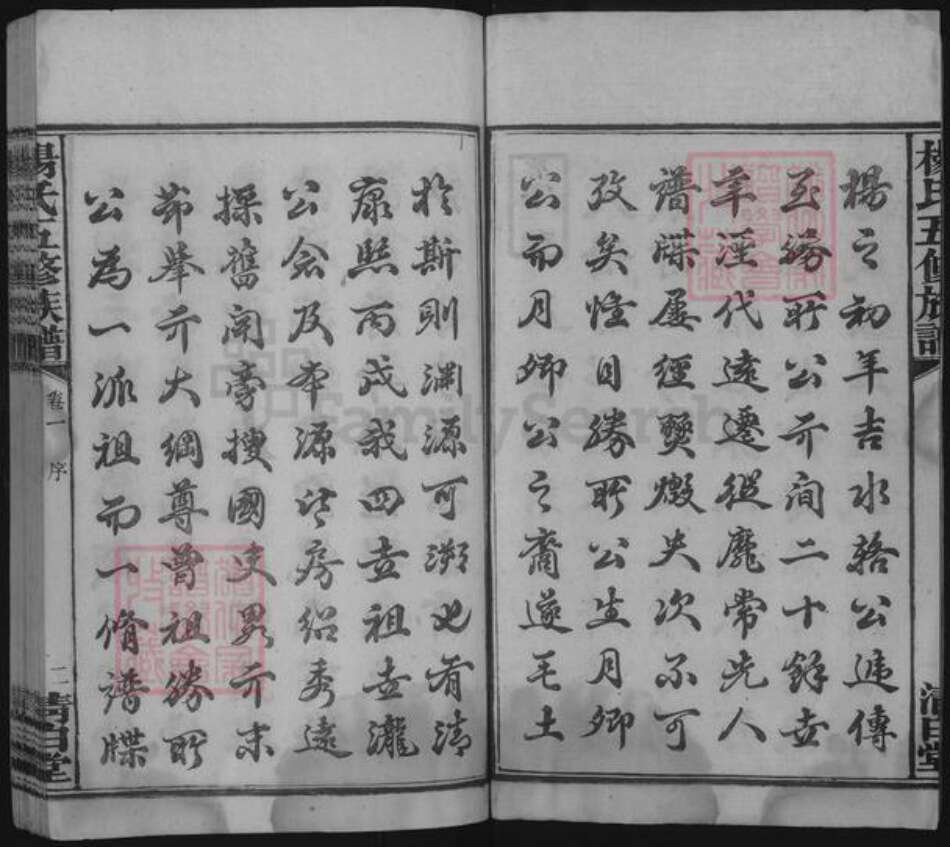 楊氏五修族譜
清白堂
楊之初年吉水輅公遞傳
至勝所公亓間二十餘世
年湮代遠遷徙靡常先人
譜牒屢經燹燬失次不可
攷矣惟自勝所公生月卿
公而月卿公之裔遂毛土
於斯則淵源可溯也肯清
康熙丙戌我四世祖世瀧
公念及本源與房紹秀遠
操舊聞旁搜國史畧亓末
節舉亓大綱尊曾祖勝所
公為一派祖而一脩譜牒
楊氏五修族譜
卷一
序
二
清白堂
FamilySearch